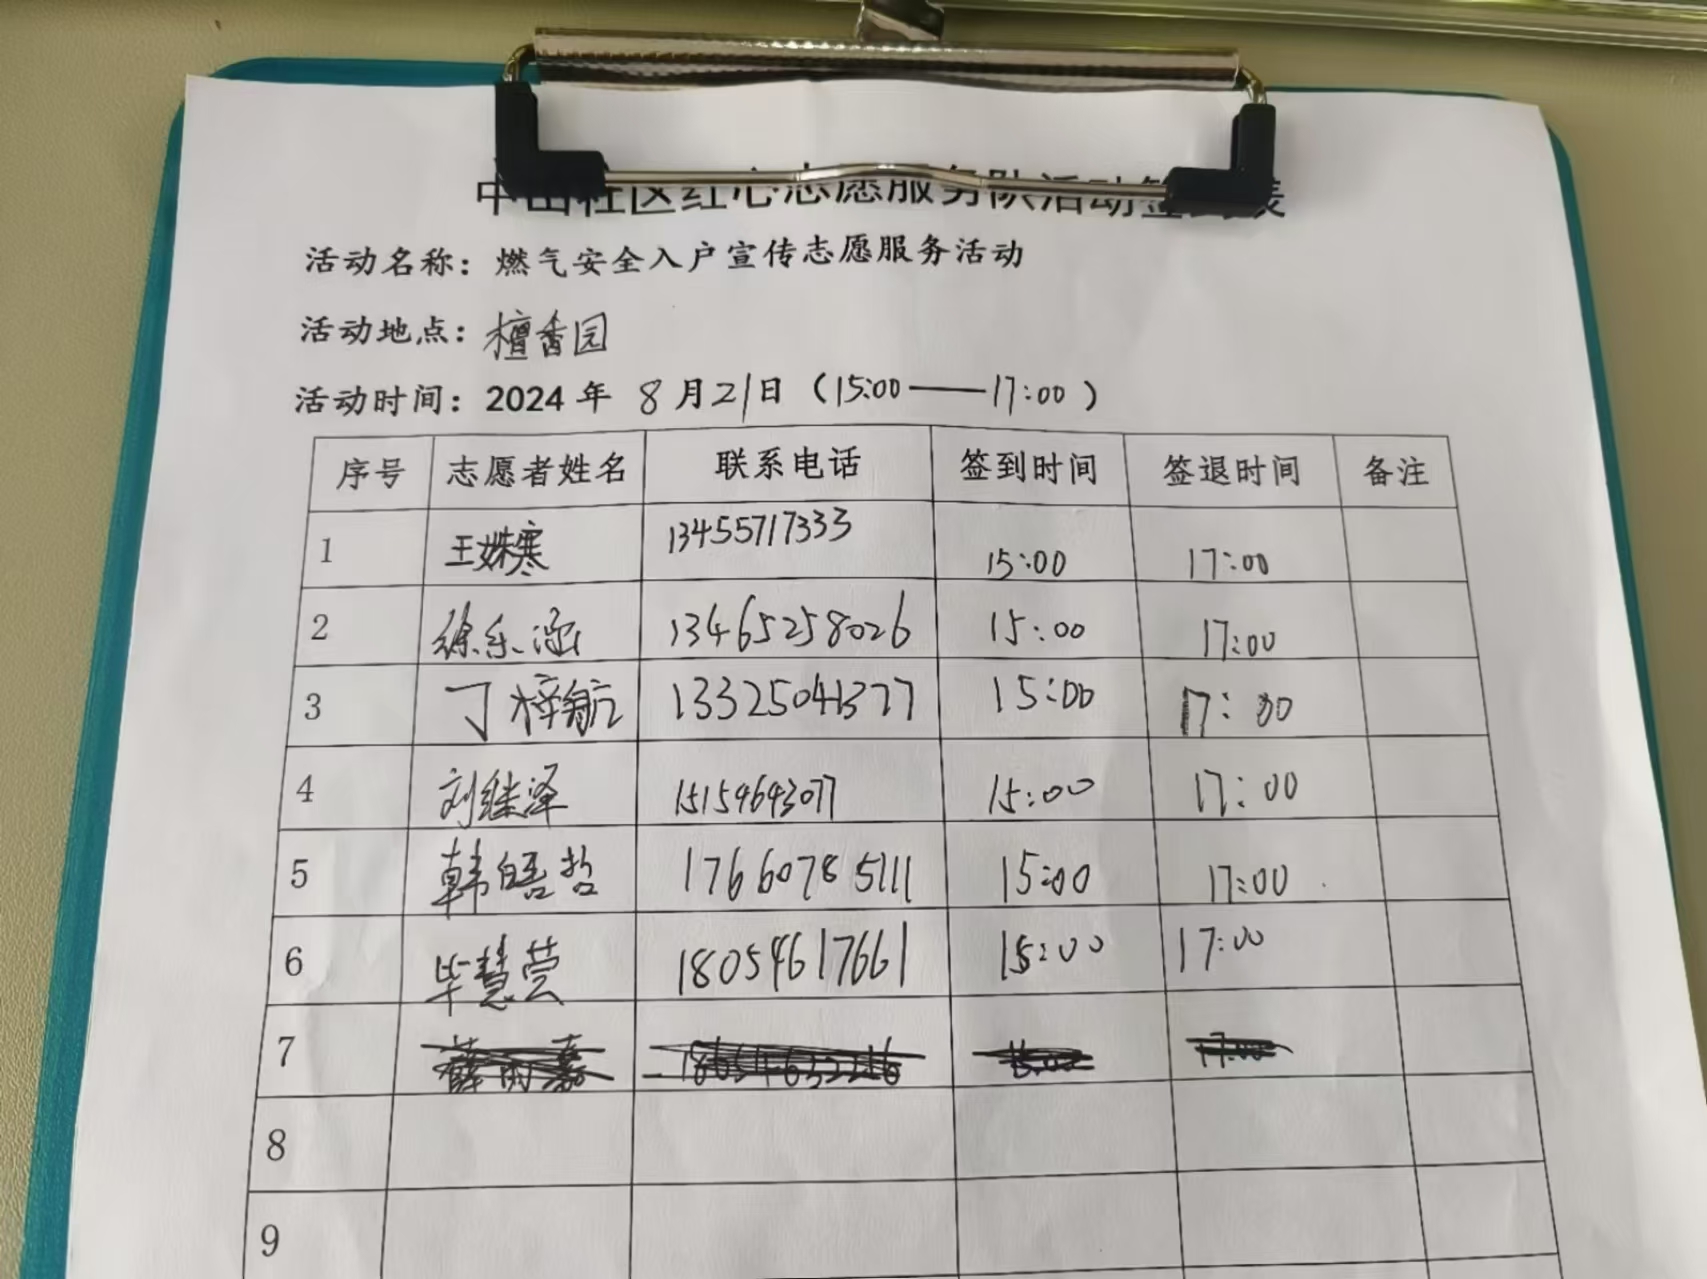 中山社区红心志愿服务队活动签到表
活动名称：燃气安全入户宣传志愿服务活动
活动地点：檀香园
活动时间：2024 年 8月21日（15:00——17:00）
序号 志愿者姓名 联系电话 签到时间 签退时间 备注
1 王姝寒 13455717333 15:00 17:00
2 徐乐涵 13465258026 15:00 17:00
3 丁梓航 13325041377 15:00 17:00
4 刘继泽 15154643077 15:00 17:00
5 韩皓哲 17660785111 15:00 17:00
6 毕慧莹 18054617661 15:00 17:00
7 15:00 17:00
8
9